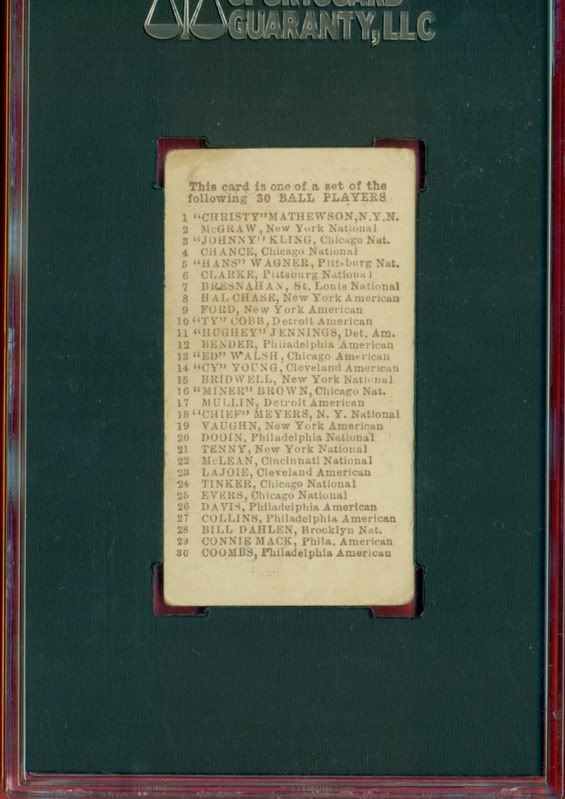 SPORTSCARD
GUARANTY, LLC
This card is one of a set of the
following 30 BALL PLAYERS
1 "CHRISTY" MATHEWSON, N.Y.N.
2 McGRAW, New York National
3 "JOHNNY" KLING, Chicago Nat.
4 CHANCE, Chicago National
5 "HANS" WAGNER, Pittsburg Nat.
6 CLARKE, Pittsburg National
7 BRESNAHAN, St. Louis National
8 HAL CHASE, New York American
9 FORD, New York American
10 "TY" COBB, Detroit American
11 "HUGHEY" JENNINGS, Det. Am.
12 BENDER, Philadelphia American
13 "ED" WALSH, Chicago American
14 "CY" YOUNG, Cleveland American
15 BRIDWELL, New York National
16 "MINER" BROWN, Chicago Nat.
17 MULLIN, Detroit American
18 "CHIEF" MEYERS, N. Y. National
19 VAUGHN, New York American
20 DOOIN, Philadelphia National
21 TENNY, New York National
22 McLEAN, Cincinnati National
23 LAJOIE, Cleveland American
24 TINKER, Chicago National
25 EVERS, Chicago National
26 DAVIS, Philadelphia American
27 COLLINS, Philadelphia American
28 BILL DAHLEN, Brooklyn Nat.
29 CONNIE MACK, Phila. American
30 COOMBS, Philadelphia American